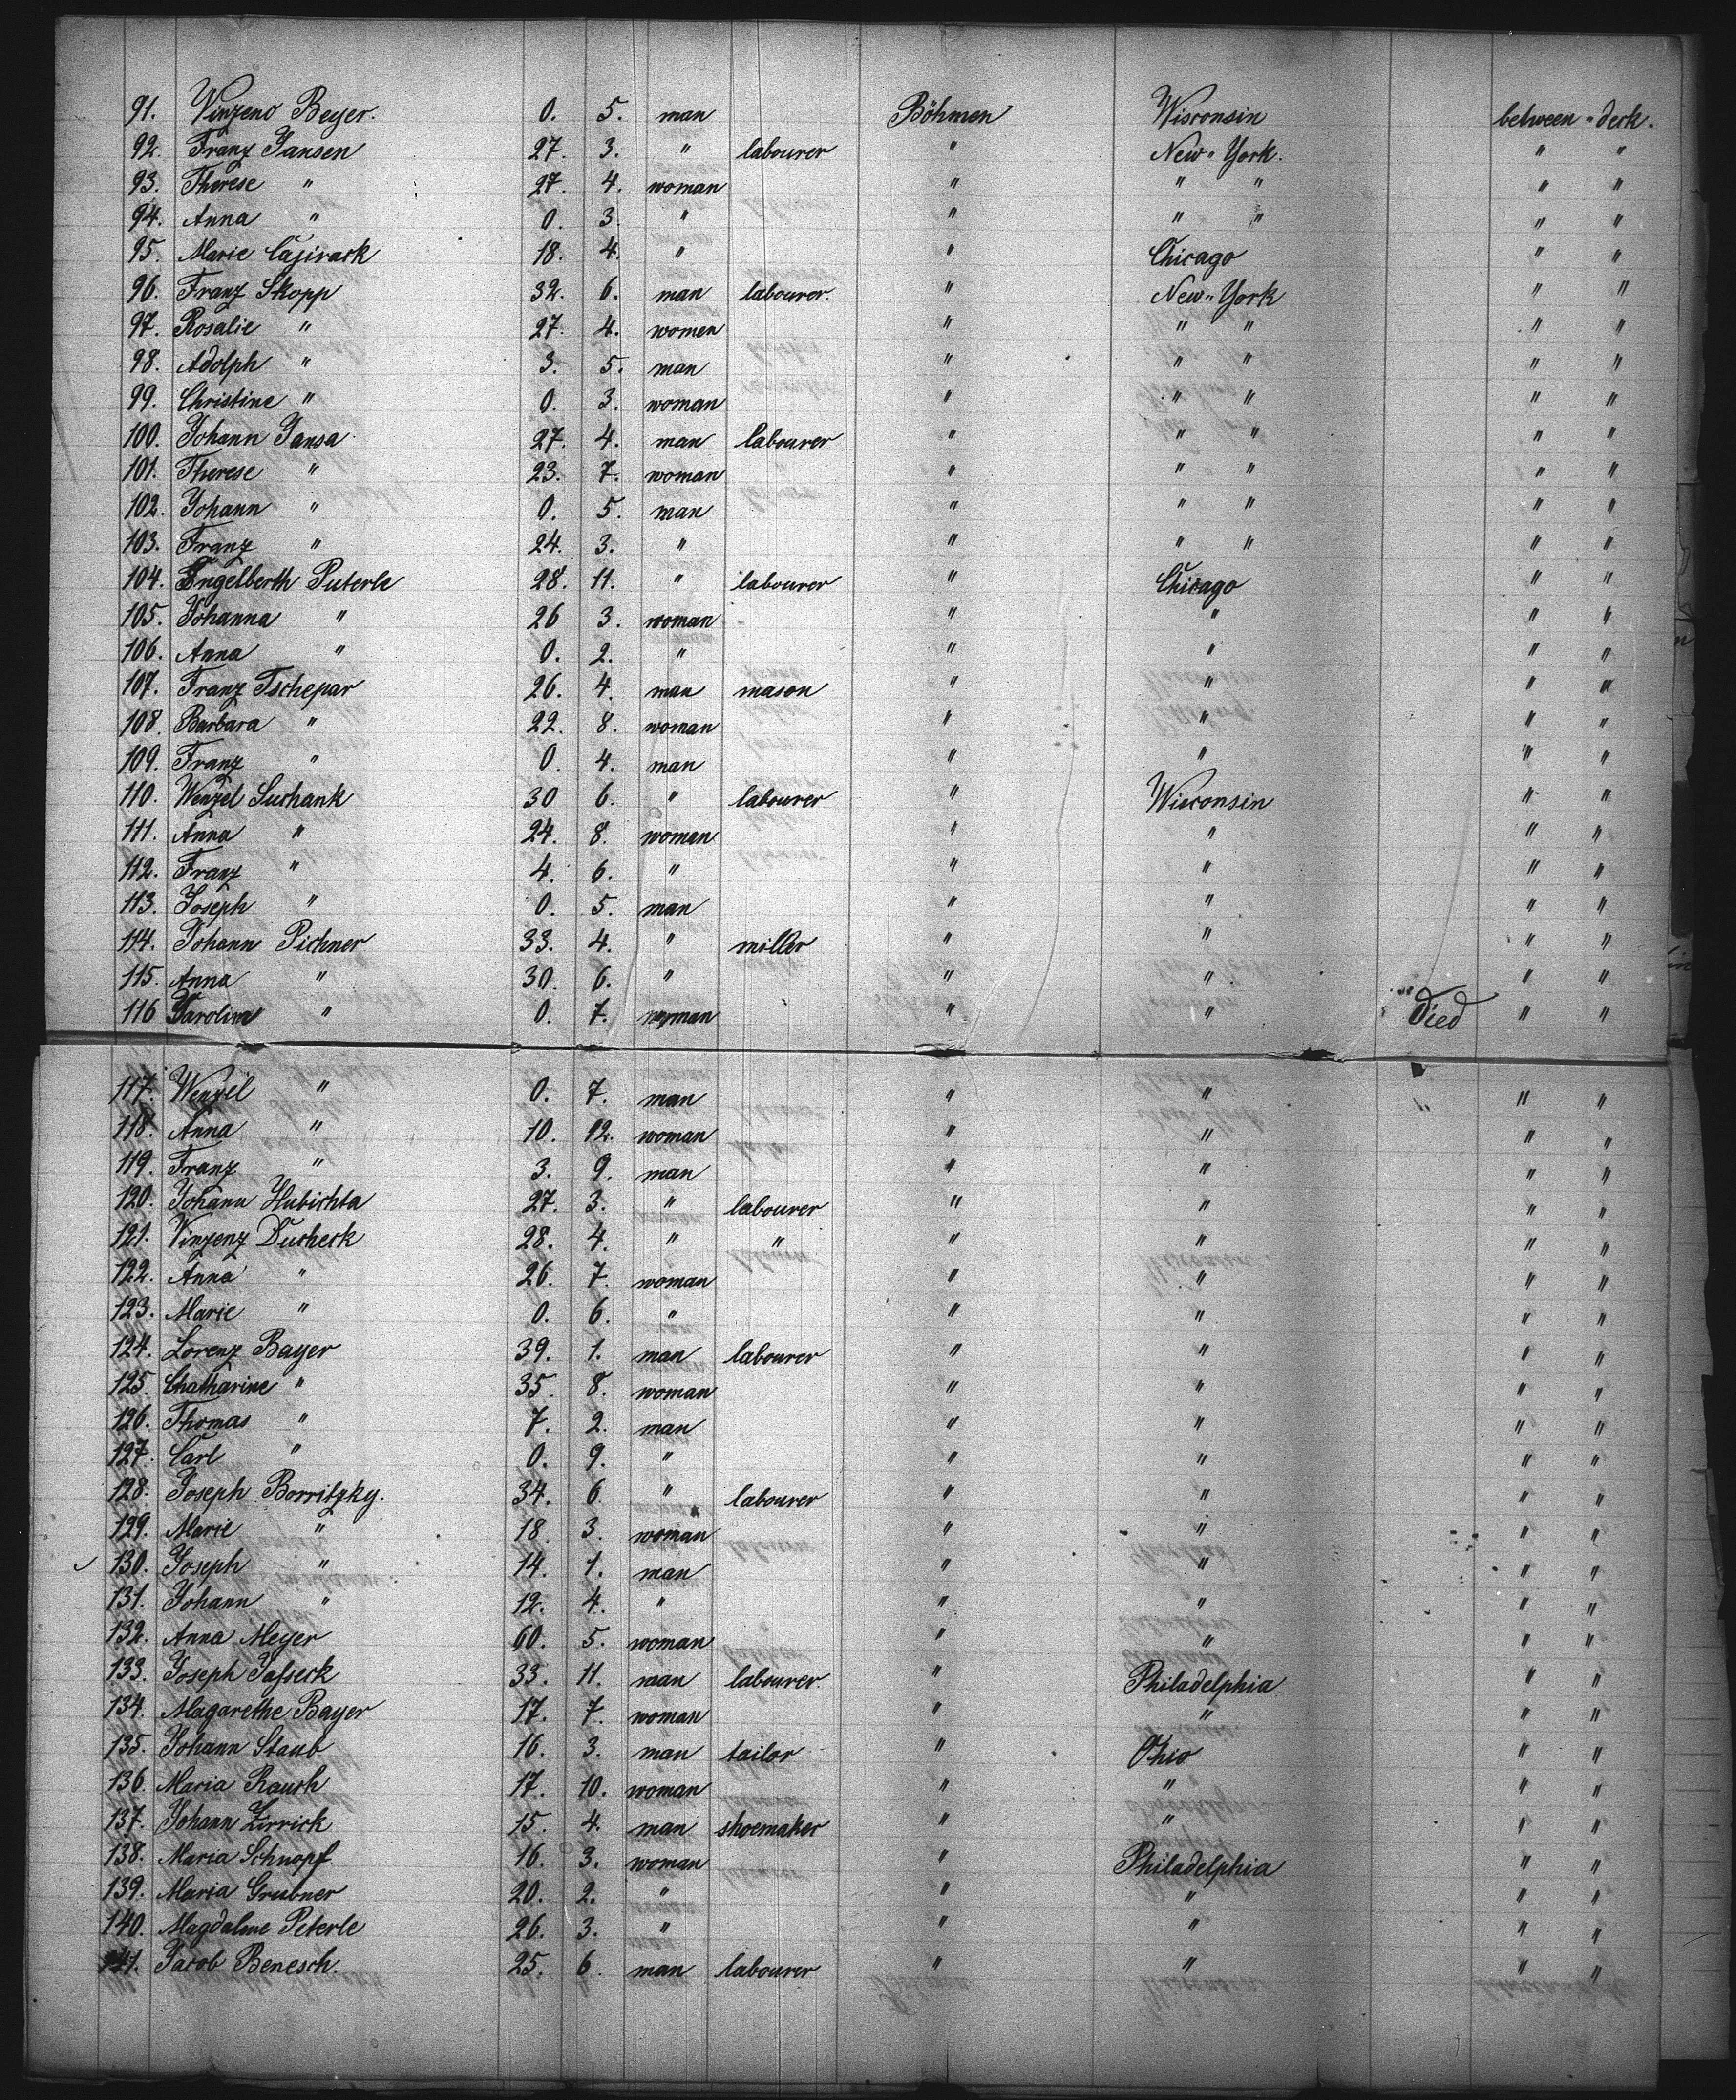 91. Vinzenz Beyer. 0. 5. man Böhmen Wisconsin between-deck.
92. Franz Jansen 27. 3. " labourer " New-York. " "
93. Therese " 27. 4. woman " " " " "
94. Anna " 0. 3. " " " " " "
95. Marie 18. 4. " " Chicago " "
96. Franz Skopp 32. 6. man labourer. " New-York " "
97. Rosalie " 27. 4. women " " " " "
98. Adolph " 3. 5. man " " " " "
99. Christine " 0. 3. woman " " " " "
100. Johann Jansa 27. 4. man labourer " " " " "
101. Therese " 23. 7. woman " " " " "
102. Johann " 0. 5. man " " " " "
103. Franz " 24. 3. " " " " " "
104. Engelberth Puterle 28. 11. " labourer " Chicago " "
105. Johanna " 26 3. woman " " " "
106. Anna " 0. 2. " " " " "
107. Franz Tschepar 26. 4. man mason " " " "
108. Barbara " 22. 8. woman " " " "
109. Franz " 0. 4. man " " " "
110. Wenzel Suchank 30 6. " labourer " Wisconsin " "
111. Anna " 24. 8. woman " " " "
112. Franz " 4. 6. " " " " "
113. Joseph " 0. 5. man " " " "
114. Johann Pichner 33. 4. " miller " " " "
115. Anna " 30. 6. " " " " "
116 Karolina " 0. 7. woman " " Died " "
117. Wenzel " 0. 7. man " " " "
118. Anna " 10. 12. woman " " " "
119. Franz " 3. 9. man " " " "
120. Johann Hubichta 27. 3. " labourer " " " "
121. Vinzenz Ducheck 28. 4. " " " " " "
122. Anna " 26. 7. woman " " " "
123. Marie " 0. 6. " " " " "
124. Lorenz Bayer 39. 1. man labourer " " " "
125. Chatharine " 35. 8. woman " " " "
126. Thomas " 7. 2. man " " " "
127. Carl " 0. 9. " " " " "
128. Joseph Borritzky. 34. 6. " labourer " " " "
129. Marie " 18 3. woman " " " "
130. Joseph " 14. 1. man " " " "
131. Johann " 12. 4. " " " " "
132. Anna Meyer 60. 5. woman " " " "
133. Joseph Jafseck 33. 11. man labourer " Philadelphia " "
134. Magarethe Bayer 17. 7. woman " " " "
135. Johann Staub 16. 3. man tailor " Ohio " "
136. Maria Rauch 17. 10. woman " " " "
137. Johann Zirrick 15. 4. man shoemaker " " " "
138. Maria Schnopf 16. 3. woman " Philadelphia " "
139. Maria Grubner 20. 2. " " " " "
140. Magdalene Peterle 26. 3. " " " " "
141. Jacob Benesch. 25. 6. man labourer " " " "